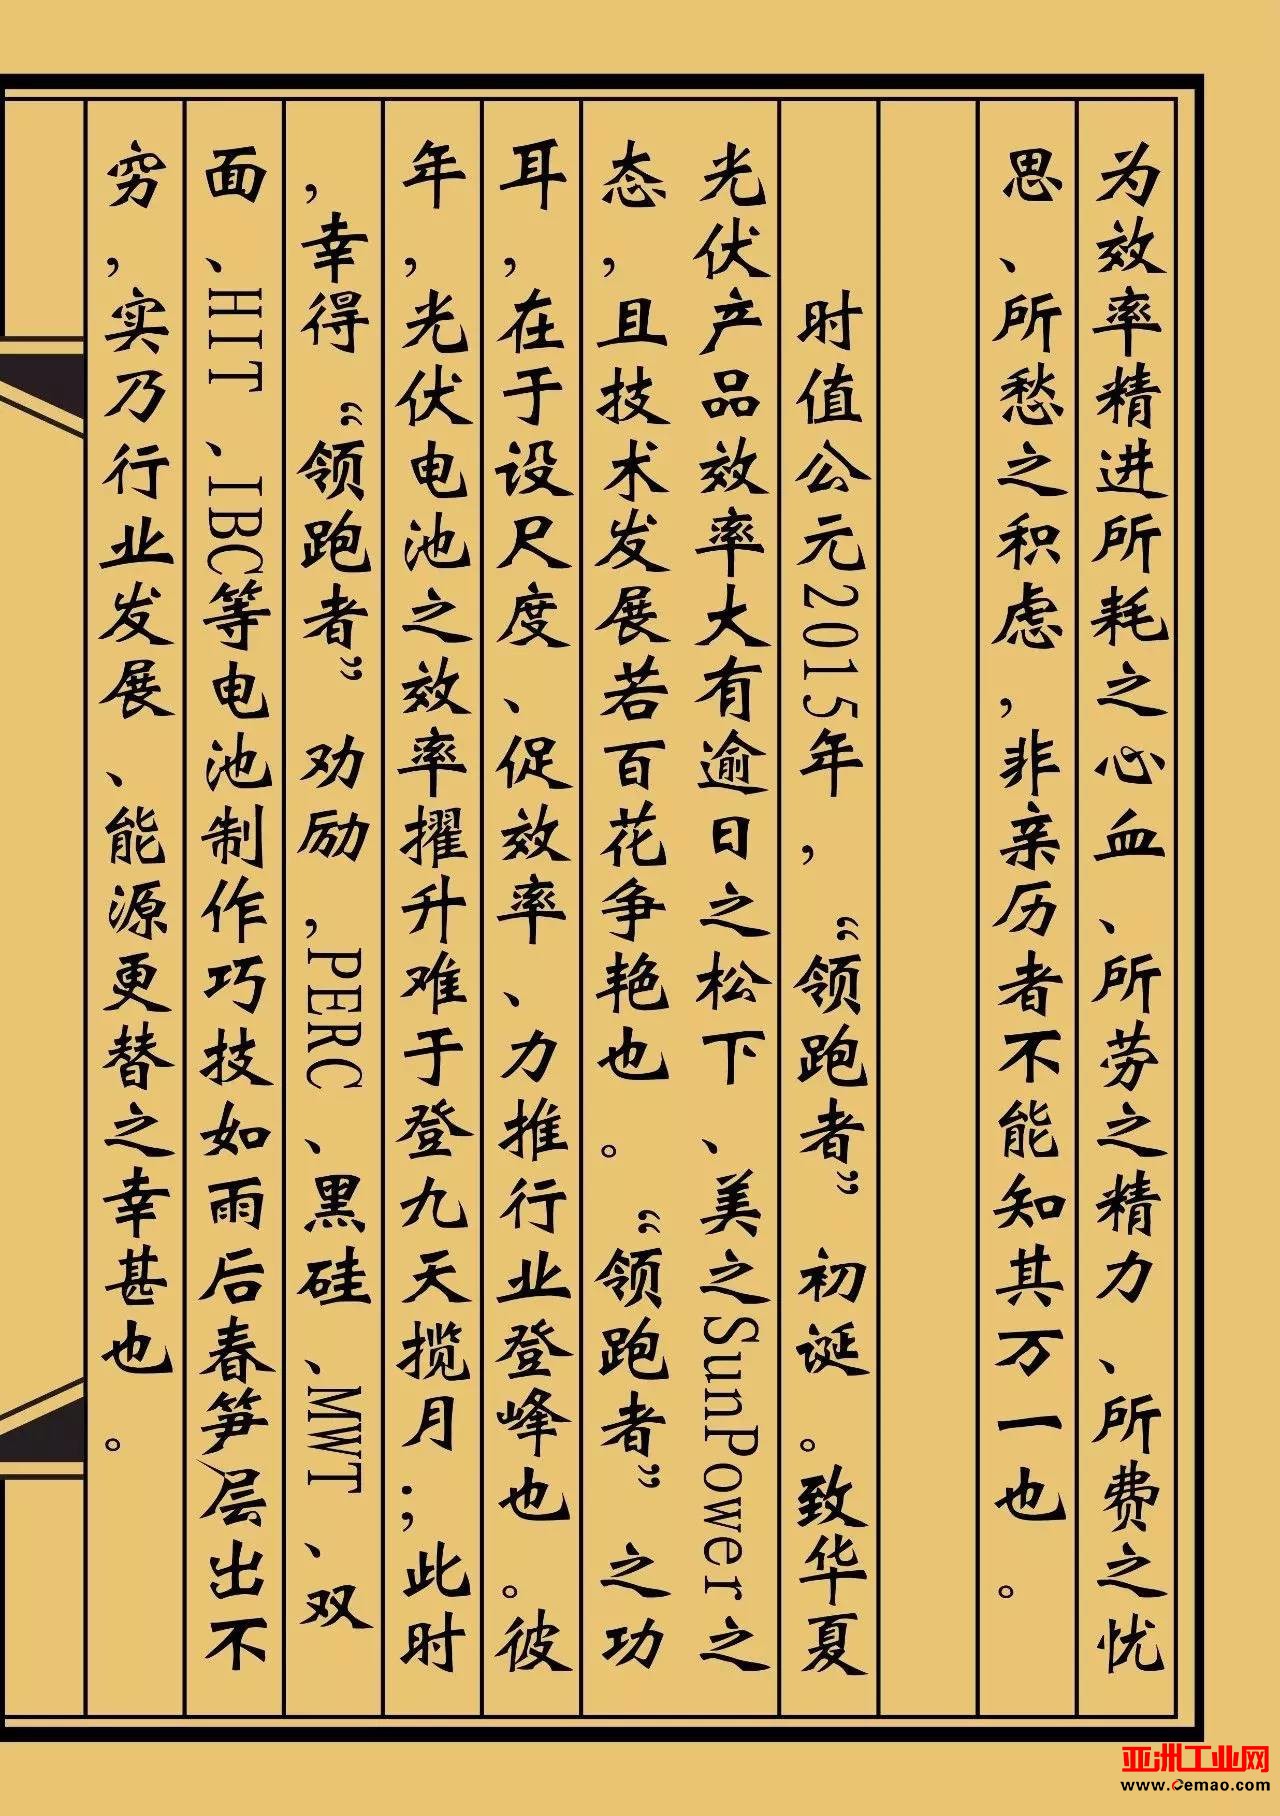 为效率精进所耗之心血、所劳之精力、所费之忧
思、所愁之积虑,非亲历者不能知其万一也。
时值公元2015年,“领跑者”初诞。致华夏
光伏产品效率大有逾日之松下、美之SunPower之
态,且技术发展若百花争艳也。“领跑者”之功
耳,在于设尺度、促效率、力推行业登峰也。彼
年,光伏电池之效率擢升难于登九天揽月;此时
,幸得“领跑者”劝励,PERC、黑硅、MWT、双
面、HIT、IBC等电池制作巧技如雨后春笋层出不
穷,实乃行业发展、能源更替之幸甚也。
亚洲工业网
www.Cemao.com